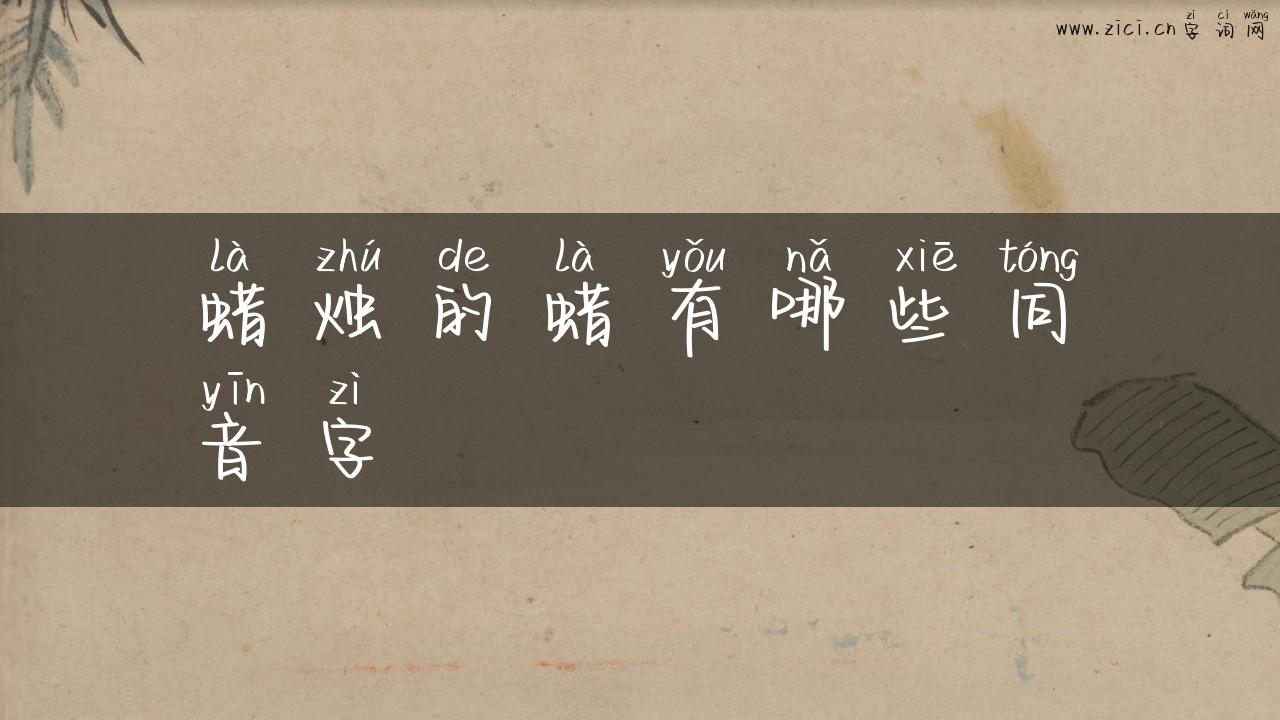 zì cí wǎng
www.zici.cn 字词网
là zhú de là yǒu nǎ xiē tóng
蜡烛的蜡有哪些同
yīn zì
音字